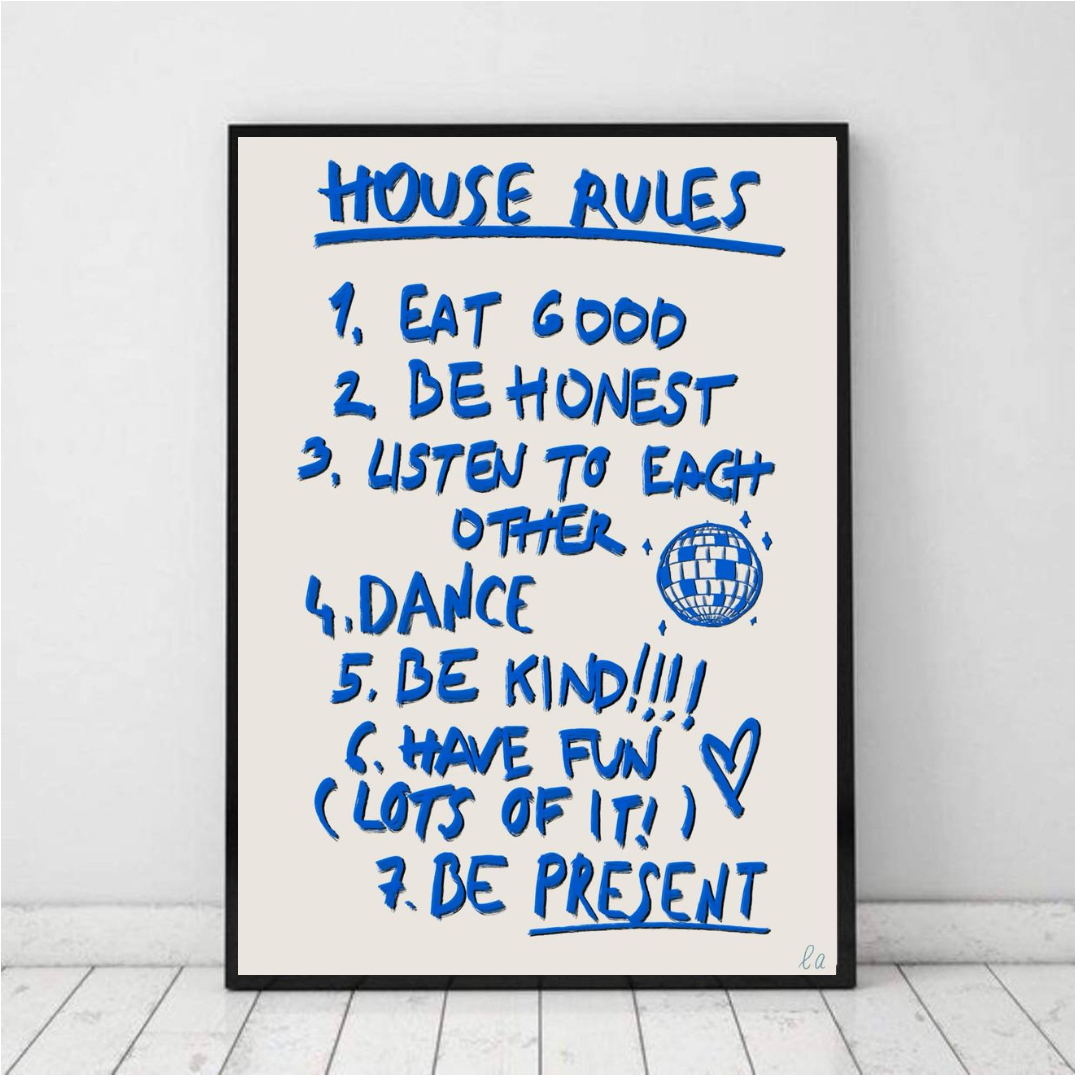 HOUSE RULES
1. EAT GOOD
2. BE HONEST
3. LISTEN TO EACH
OTHER
4. DANCE
5. BE KIND!!!!
6. HAVE FUN
(LOTS OF IT!)
7. BE PRESENT
la